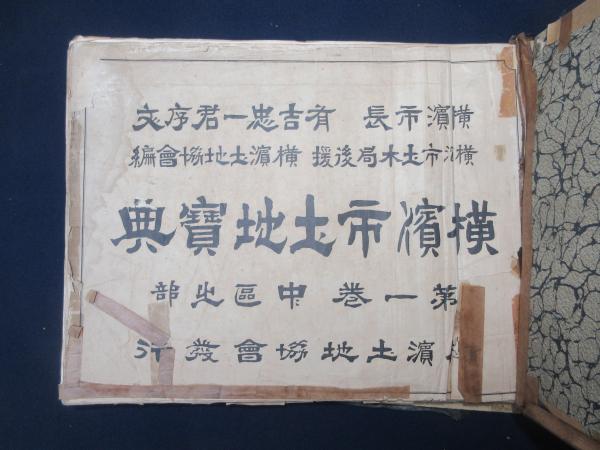 横濱市長 有吉忠一君序文
横濱市土木局後援 横濱土地協會編
横濱市土地寶典
第一巻 中區之部
横濱土地協會發行